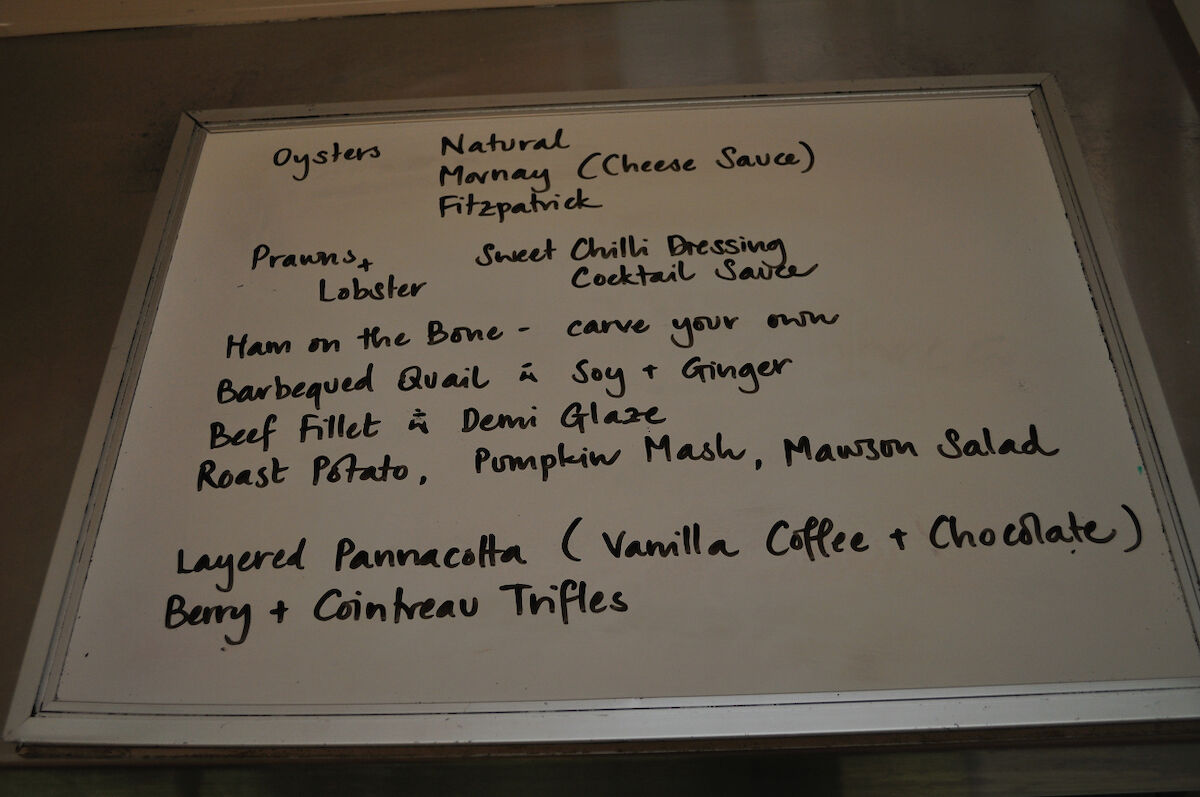 Oysters Natural
Mornay (Cheese Sauce)
Fitzpatrick
Prawns + Sweet Chilli Dressing
Lobster Cocktail Sauce
Ham on the Bone - carve your own
Barbequed Quail in Soy + Ginger
Beef Fillet in Demi Glaze
Roast Potato, Pumpkin Mash, Mawson Salad
Layered Pannacotta (Vanilla Coffee + Chocolate)
Berry + Cointreau Trifles